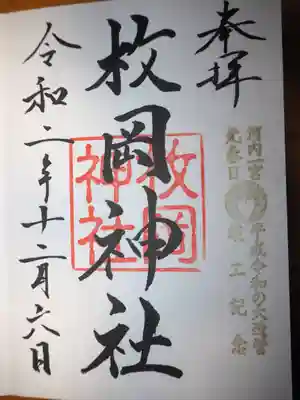 奉拝
河内一宮
元春日
平成令和の大改修
竣工記念
枚岡神社
枚岡
神社
令和二年十二月六日